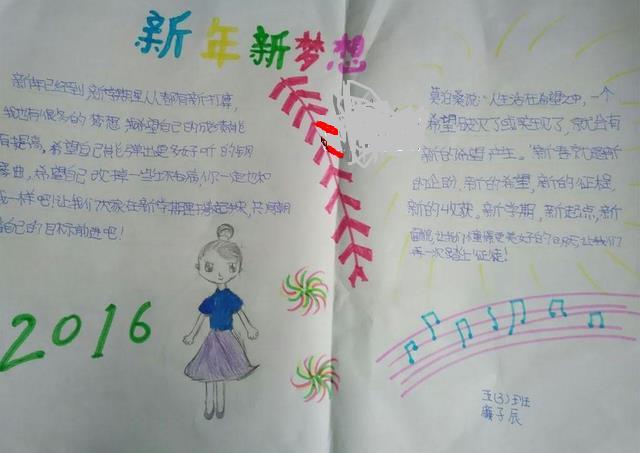 新年新梦想
新年已经到,新学期里人人都有新打算,
我也有很多的梦想,我希望自己的成绩能
有提高,希望自己能弹出更多好听的钢
琴曲,希望自己改掉一些坏毛病,你一定也和
我一样吧!让我们大家在新学期里
自己的目标前进吧!
莫泊桑说:"人生活在希望之中,一个
希望破灭了或实现了,就会有
新的希望产生。"新春
的企盼,新的希望,新的征程,
新的收获。新学期,新起点,新
面貌,让我们
再一次踏上征徒!
2016
五(3)班
子辰